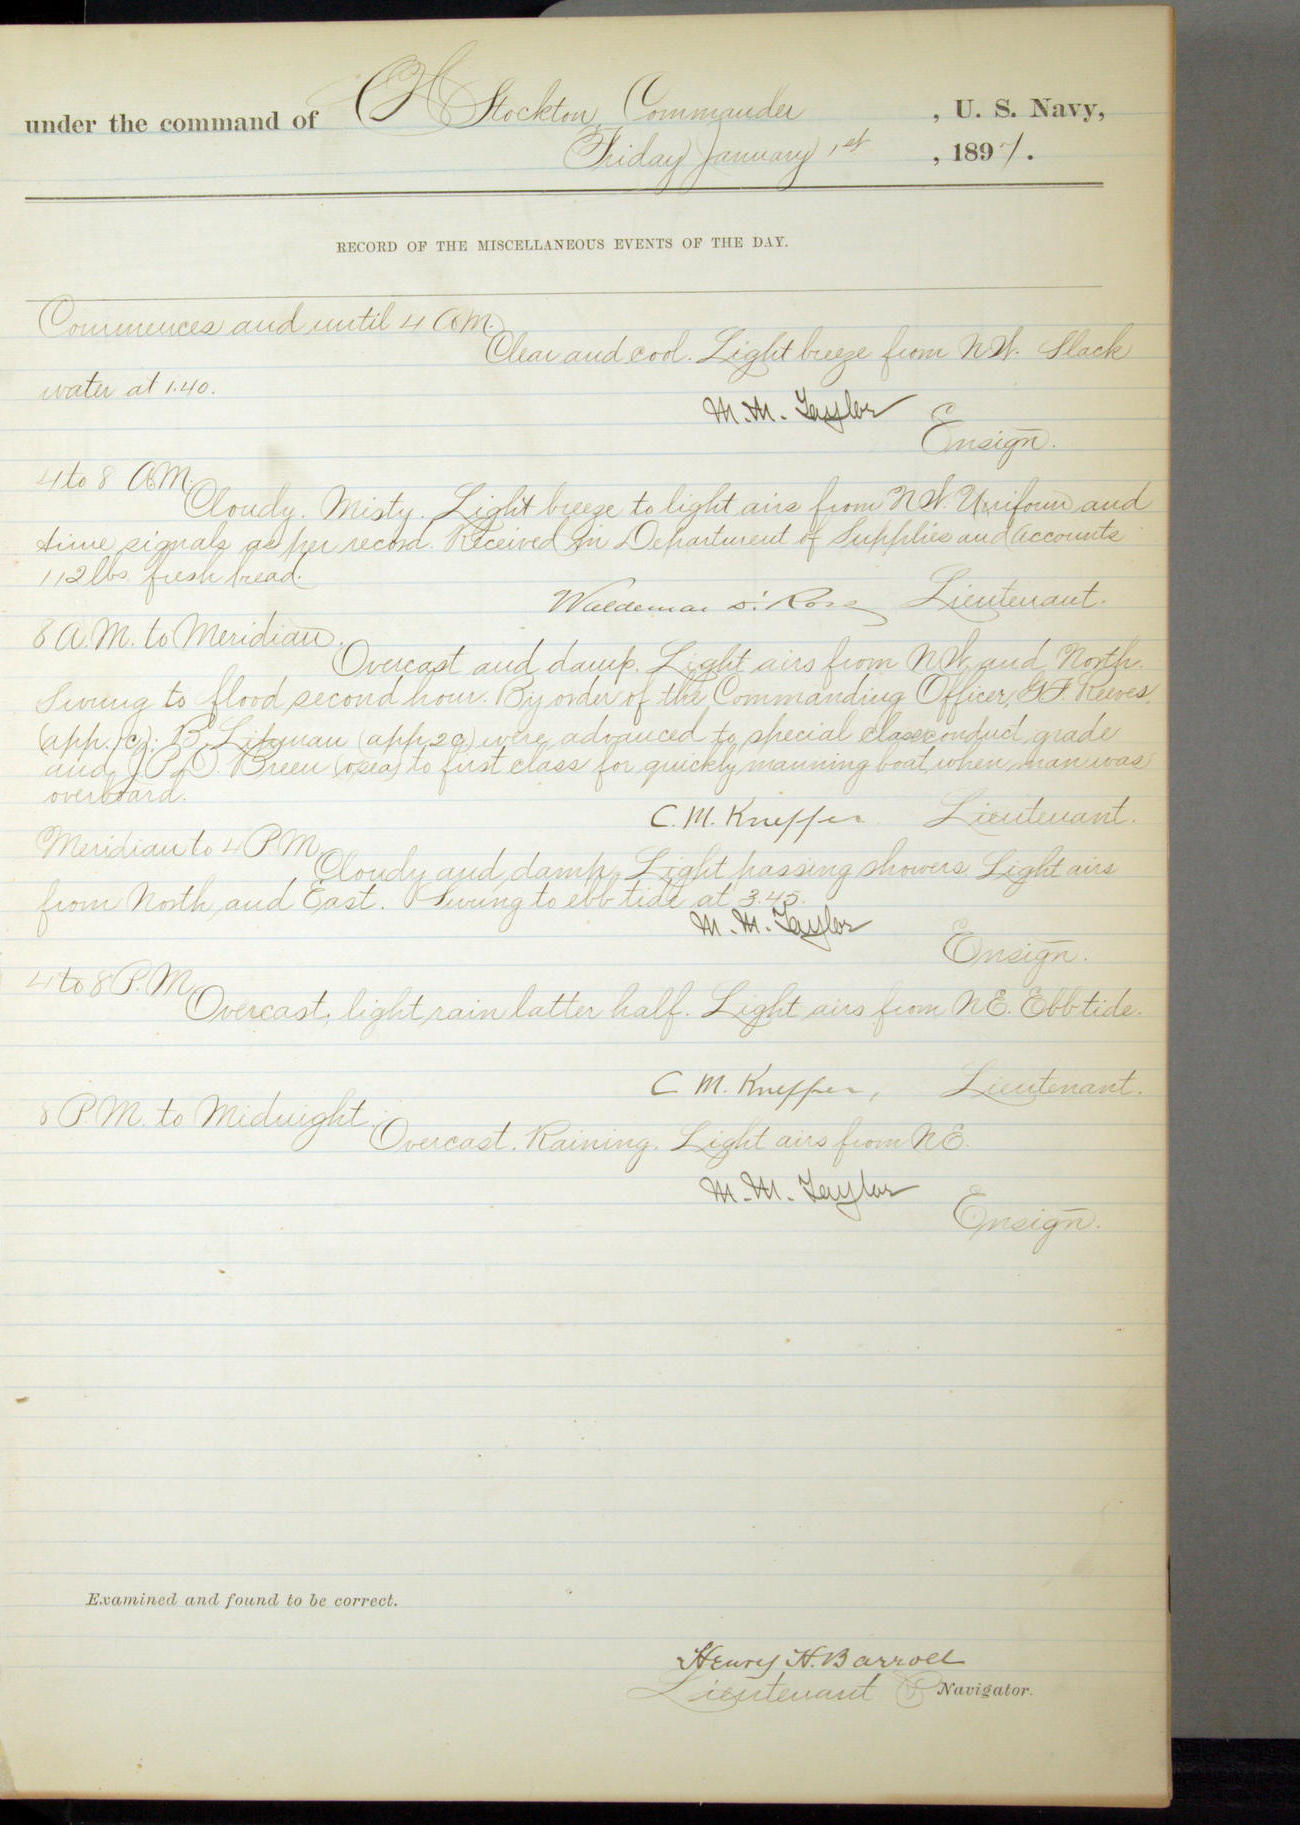 under the command of C H Stockton, Commander , U. S. Navy,
Friday January 1st , 1897.
RECORD OF THE MISCELLANEOUS EVENTS OF THE DAY.
Commences and until 4 A.M.
Clear and cool. Light breeze from N.W. Slack
water at 1.40.
M. M. Taylor
Ensign.
4 to 8 A.M.
Cloudy. Misty. Light breeze to light airs from N.W. Uniform and
time signals as per record. Received in Department of Supplies and Accounts
112 lbs fresh bread.
Lieutenant.
8 A.M. to Meridian.
Overcast and damp. Light airs from N.W. and North.
Swung to flood second hour. By order of the Commanding Officer, Reeves
(app. 1c): B. Litman (app 2c) were advanced to special class conduct grade
and J. P. J. Breen (o.sea) to first class for quickly manning boat when man was
overboard.
C. M. Knepper Lieutenant.
Meridian to 4 P.M.
Cloudy and damp. Light passing showers. Light airs
from North and East. Swung to ebb tide at 3.45.
M. M. Taylor
Ensign.
4 to 8 P.M.
Overcast, light rain latter half. Light airs from N.E. Ebb tide.
C. M. Knepper, Lieutenant.
8 P.M. to Midnight.
Overcast. Raining. Light airs from N.E.
M. M. Taylor
Ensign.
Examined and found to be correct.
Henry H. Barroll
Lieutenant & Navigator.